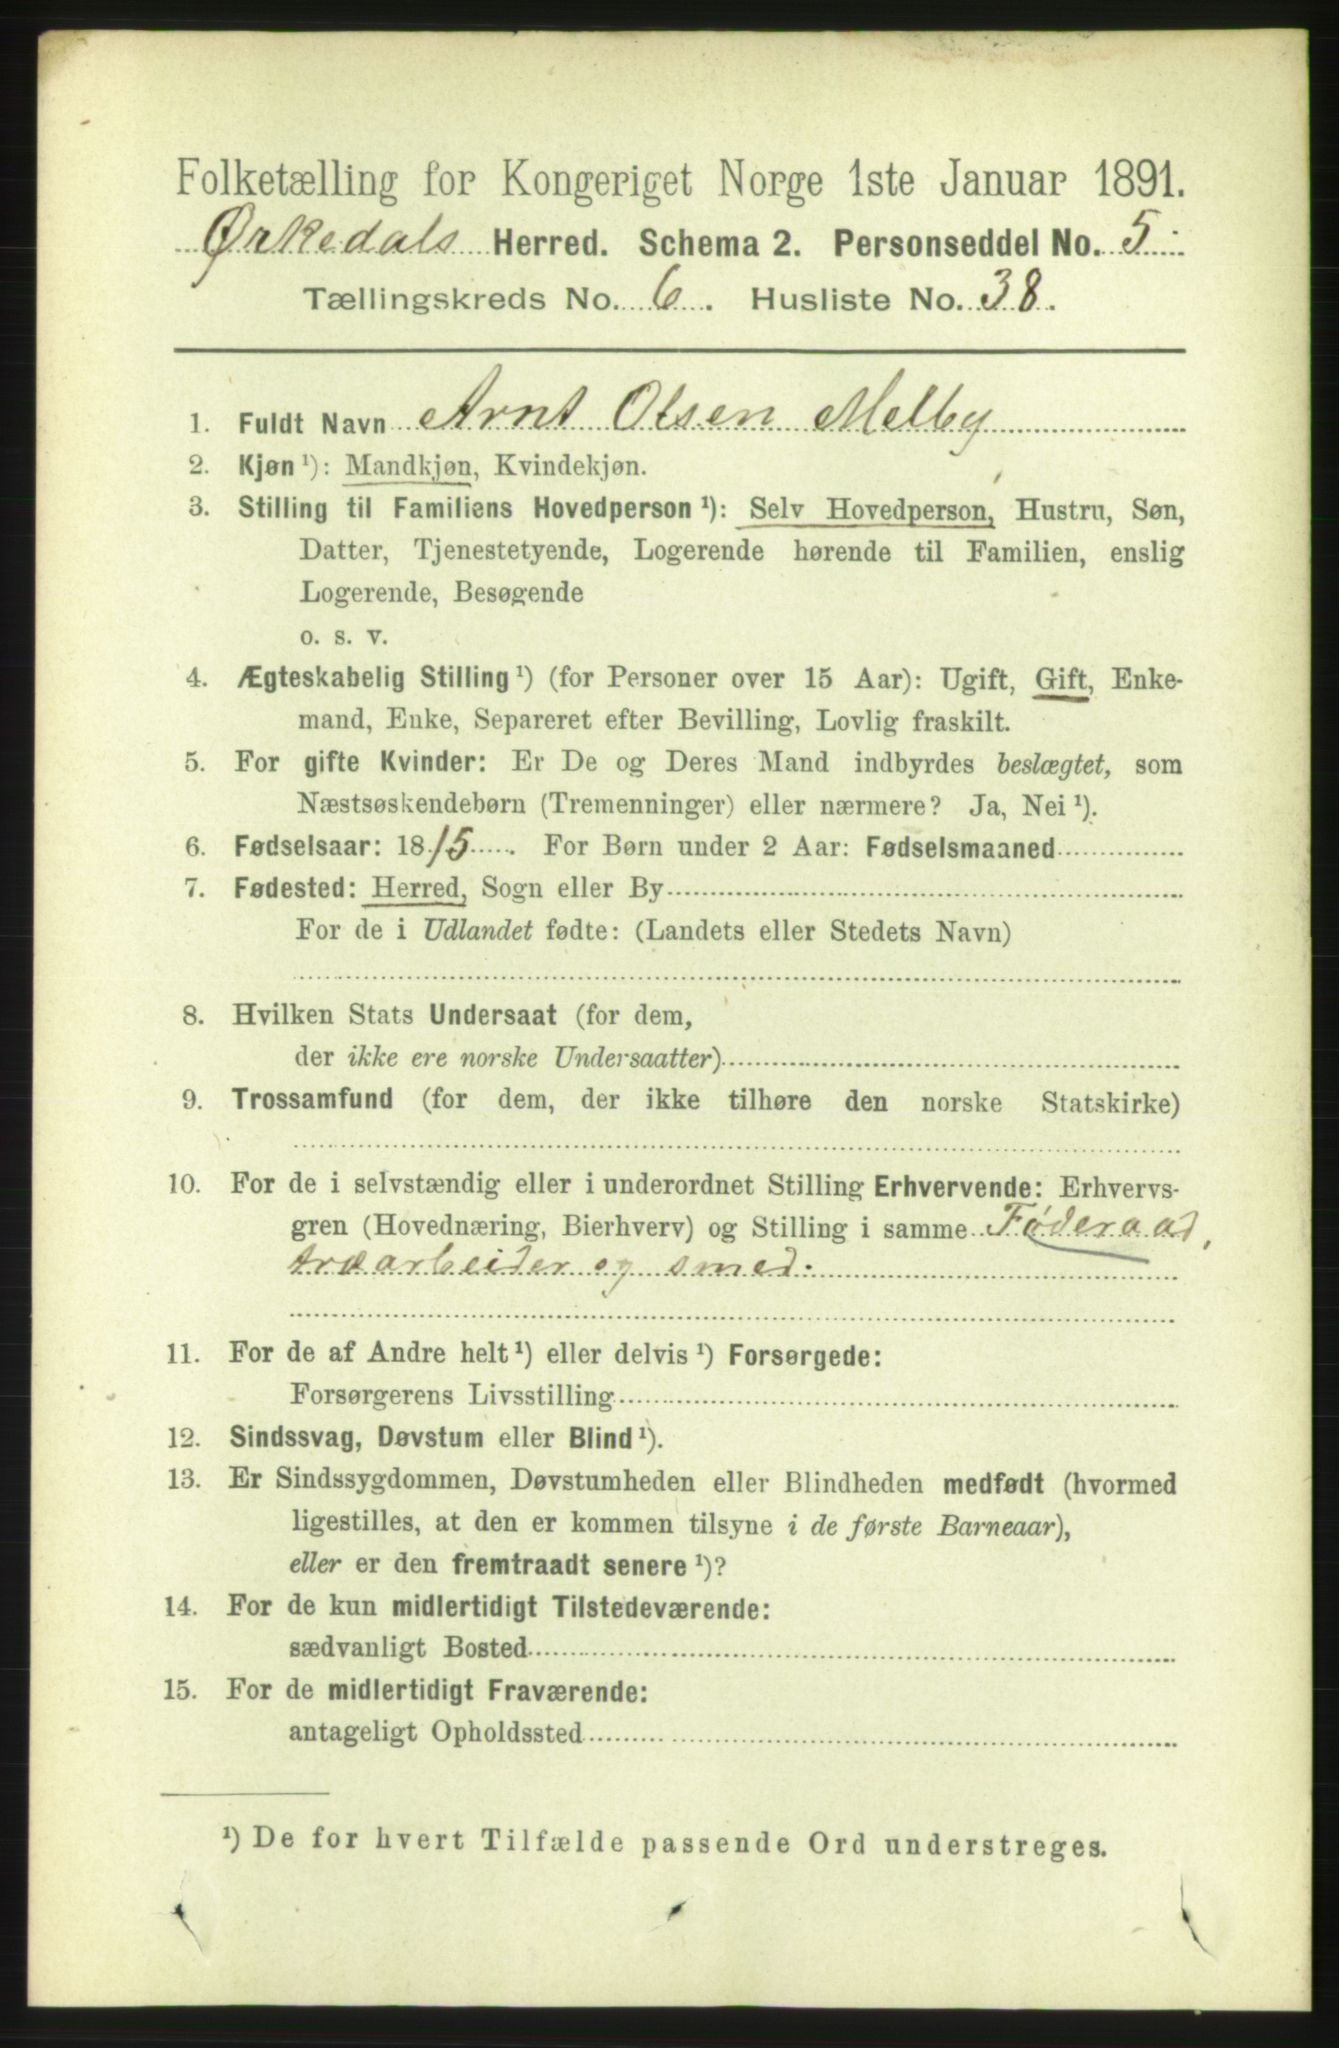 Folketælling for Kongeriget Norge 1ste Januar 1891.
Ørkedals Herred. Schema 2. Personseddel No. 5
Tællingskreds No. 6. Husliste No. 38.
1. Fuldt Navn Arnt Olsen Melby
2. Kjøn ¹): Mandkjøn, Kvindekjøn.
3. Stilling til Familiens Hovedperson ¹): Selv Hovedperson, Hustru, Søn,
Datter, Tjenestetyende, Logerende hørende til Familien, enslig
Logerende, Besøgende
o. s. v.
4. Ægteskabelig Stilling ¹) (for Personer over 15 Aar): Ugift, Gift, Enke-
mand, Enke, Separeret efter Bevilling, Lovlig fraskilt.
5. For gifte Kvinder: Er De og Deres Mand indbyrdes beslægtet, som
Næstsøskendebørn (Tremenninger) eller nærmere? Ja, Nei ¹).
6. Fødselsaar: 1815. For Børn under 2 Aar: Fødselsmaaned
7. Fødested: Herred, Sogn eller By
For de i Udlandet fødte: (Landets eller Stedets Navn)
8. Hvilken Stats Undersaat (for dem,
der ikke ere norske Undersaatter)
9. Trossamfund (for dem, der ikke tilhøre den norske Statskirke)
10. For de i selvstændig eller i underordnet Stilling Erhvervende: Erhvervs-
gren (Hovednæring, Bierhverv) og Stilling i samme Føderaad,
træarbeider og smed.
11. For de af Andre helt ¹) eller delvis ¹) Forsørgede:
Forsørgerens Livsstilling
12. Sindssvag, Døvstum eller Blind ¹).
13. Er Sindssygdommen, Døvstumheden eller Blindheden medfødt (hvormed
ligestilles, at den er kommen tilsyne i de første Barneaar),
eller er den fremtraadt senere ¹)?
14. For de kun midlertidigt Tilstedeværende:
sædvanligt Bosted
15. For de midlertidigt Fraværende:
antageligt Opholdssted
¹) De for hvert Tilfælde passende Ord understreges.